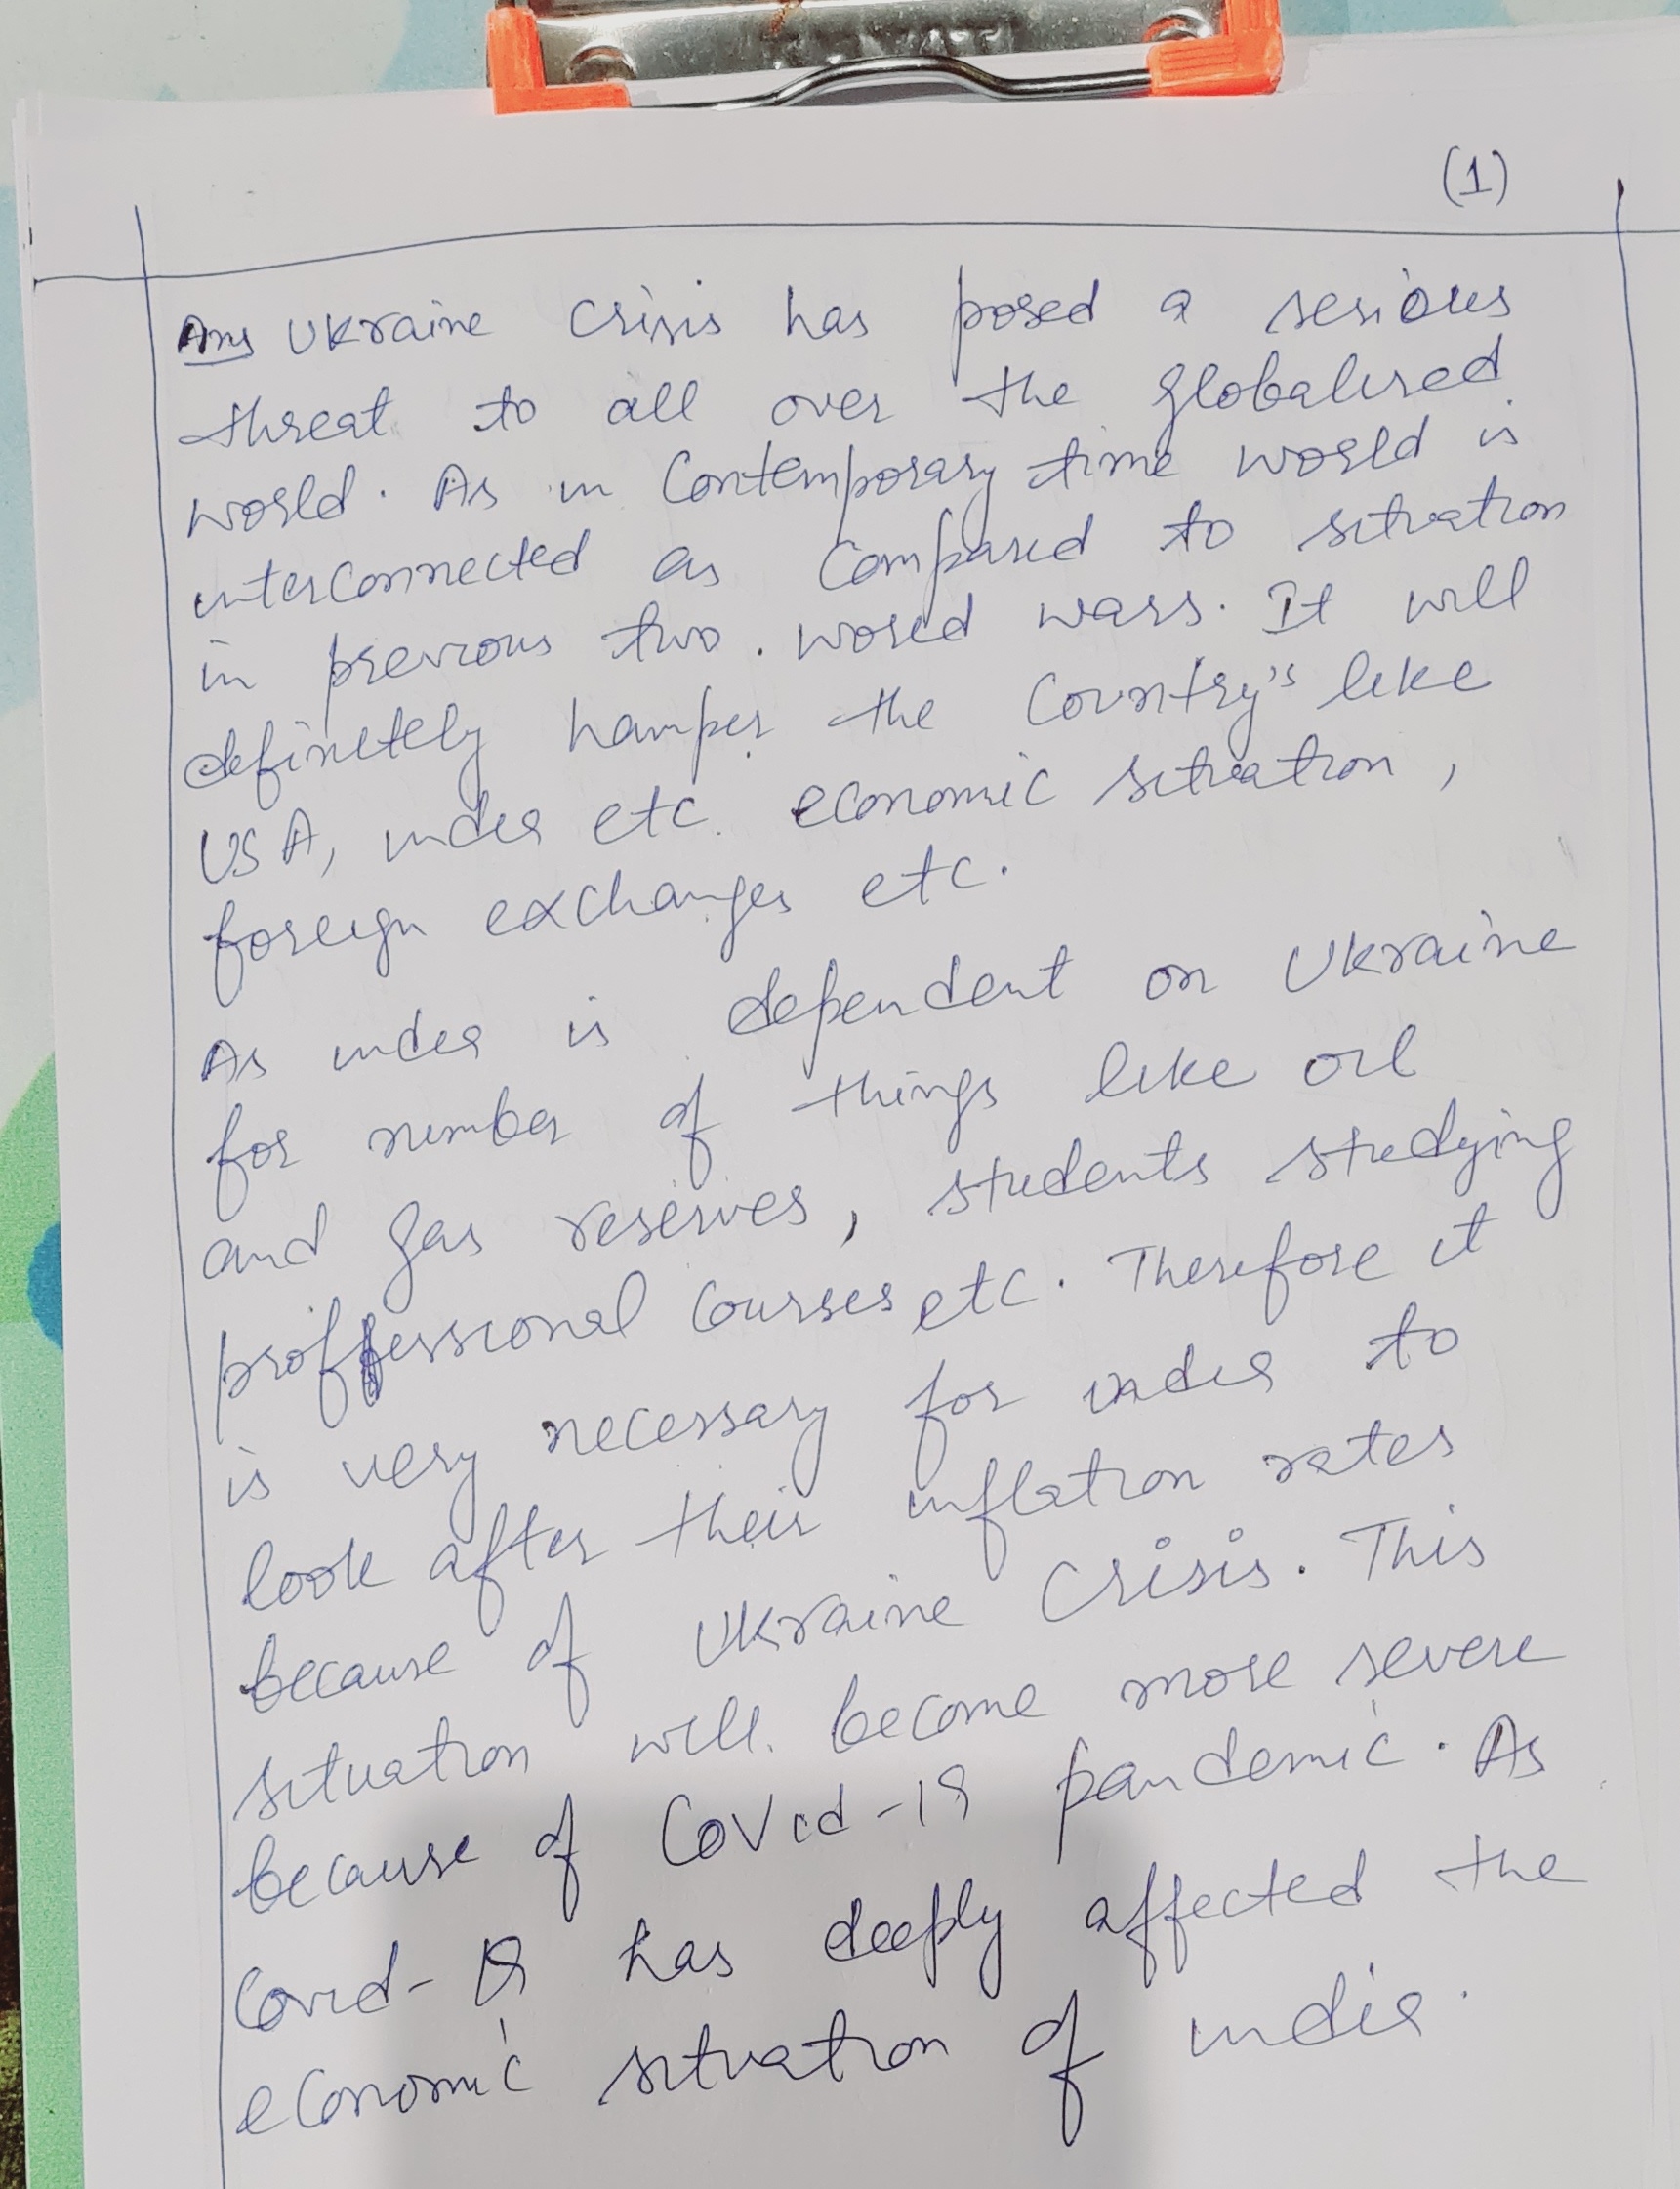 (1)
Ans Ukraine Crisis has posed a serious
threat to all over the globalised
world. As in Contemporary time world is
interconnected as Compared to situation
in previous two. world wars. It will
definetely hamper the Country's like
USA, india etc. economic situation,
foreign exchanges etc.
As india is dependent on Ukraine
for number of things like oil
and gas reserves, students studying
proffessional Courses etc. Therefore it
is very necessary for india to
look after their inflation rates
because of Ukraine Crisis. This
situation will. become more severe
because of Covid-19 pandemic. As
Covid-19 has deeply affected the
economic situation of india.